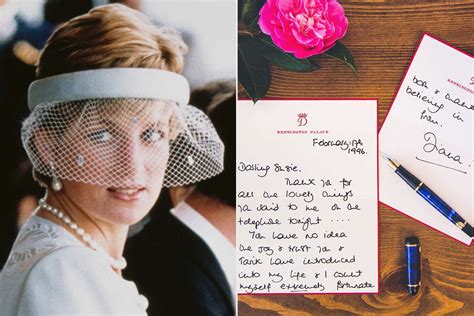 KENSINGTON PALACE
February 17th
1996.
Darling Susie,
Thank you for
all the lovely things
you said to me on the
telephone tonight ....
You have no idea
the joy & trust you &
Tarik have introduced
into my life & I count
myself extremely fortunate
KENSINGTON PALACE
believing in
Diana